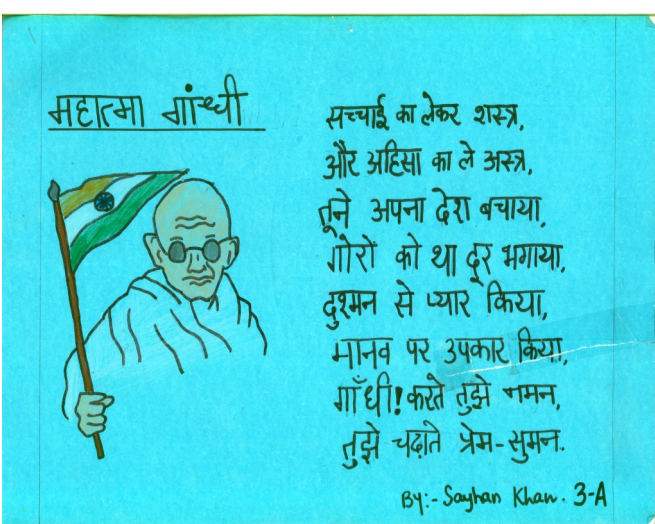 महात्मा गांधी
सच्चाई का लेकर शस्त्र,
और अहिसा का ले अस्त्र,
तूने अपना देश बचाया,
गोरों को था दूर भगाया,
दुश्मन से प्यार किया,
मानव पर उपकार किया,
गाँधी! करते तुझे नमन,
तुझे चढ़ाते प्रेम-सुमन.
By:- Sayhan Khan. 3-A